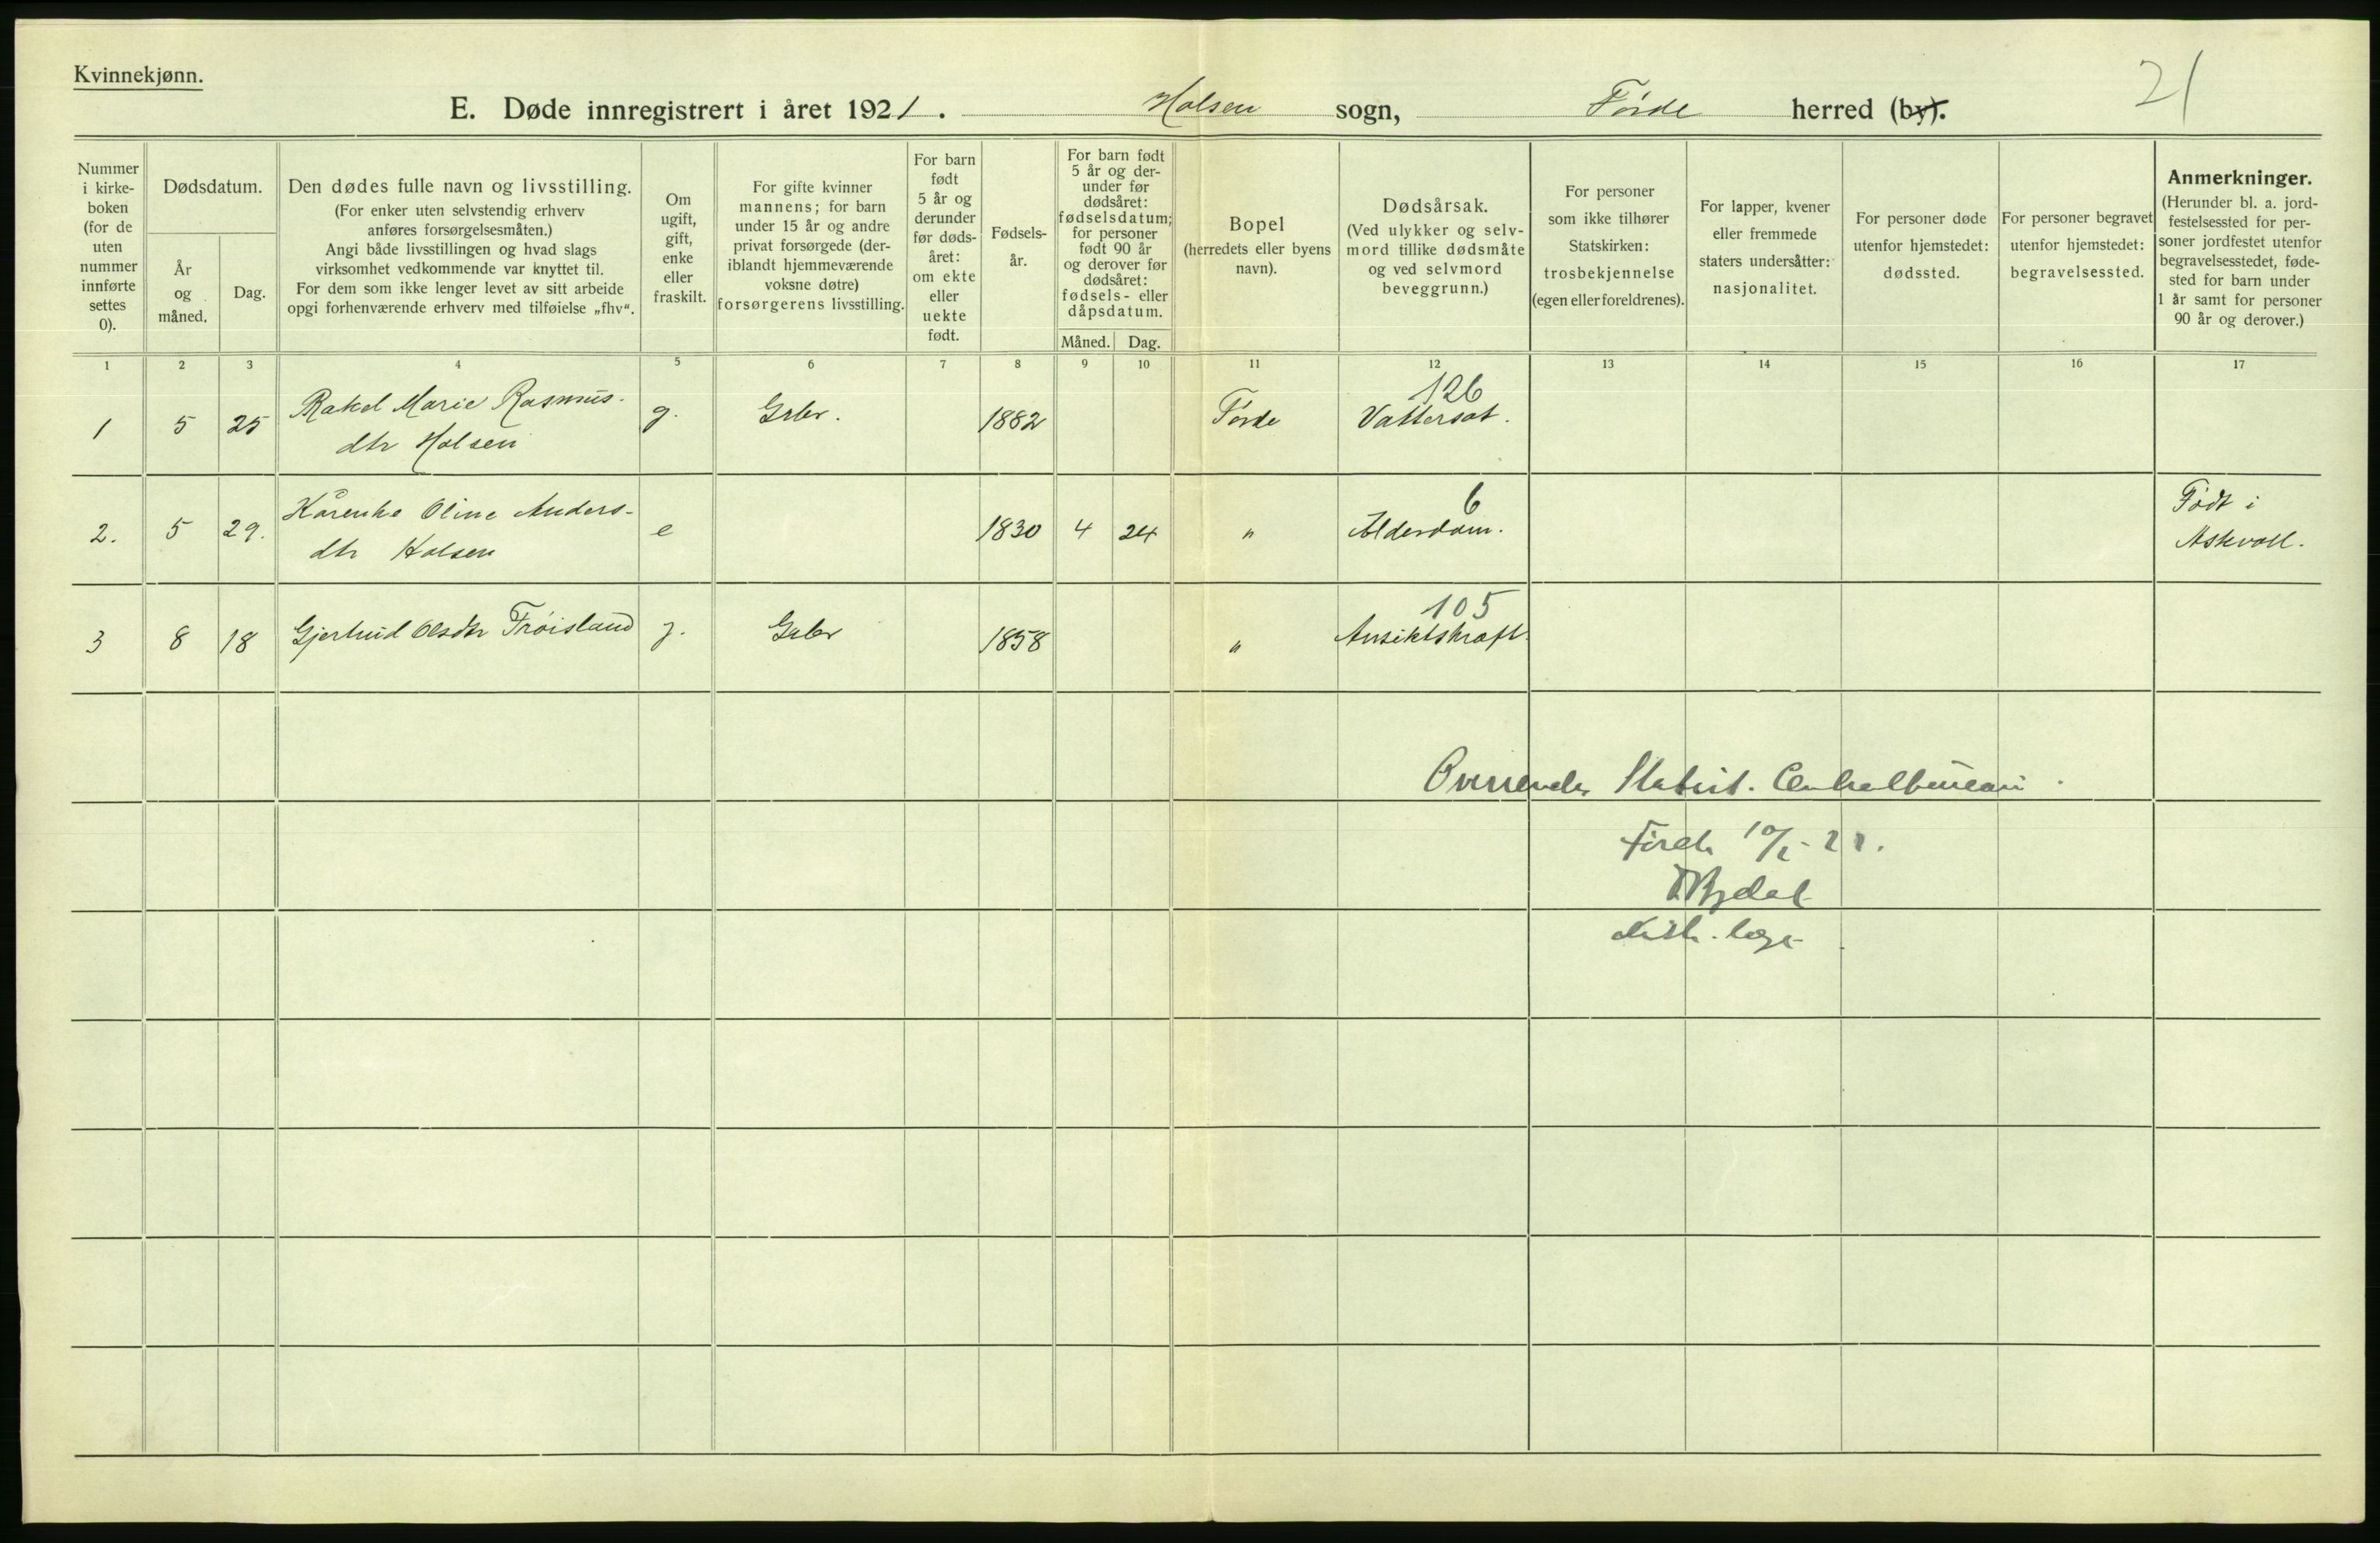 Kvinnekjønn.
21
E. Døde innregistrert i året 1921. Holsen sogn, Førde herred (by).
Nummer
i kirke-
boken
(for de
uten
nummer
innførte
settes
0).
Dødsdatum.
År
og
måned.
Dag.
Den dødes fulle navn og livsstilling.
(For enker uten selvstendig erhverv
anføres forsørgelsesmåten.)
Angi både livsstillingen og hvad slags
virksomhet vedkommende var knyttet til.
For dem som ikke lenger levet av sitt arbeide
opgi forhenværende erhverv med tilføielse „fhv“.
Om
ugift,
gift,
enke
eller
fraskilt.
For gifte kvinner
mannens; for barn
under 15 år og andre
privat forsørgede (der-
iblandt hjemmeværende
voksne døtre)
forsørgerens livsstilling.
For barn
født
5 år og
derunder
før døds-
året:
om ekte
eller
uekte
født.
Fødsels-
år.
For barn født
5 år og der-
under før
dødsåret:
fødselsdatum;
for personer
født 90 år
og derover før
dødsåret:
fødsels- eller
dåpsdatum.
Måned. Dag.
Bopel
(herredets eller byens
navn).
Dødsårsak.
(Ved ulykker og selv-
mord tillike dødsmåte
og ved selvmord
beveggrunn.)
For personer
som ikke tilhører
Statskirken:
trosbekjennelse
(egen eller foreldrenes).
For lapper, kvener
eller fremmede
staters undersåtter:
nasjonalitet.
For personer døde
utenfor hjemstedet:
dødssted.
For personer begravet
utenfor hjemstedet:
begravelsessted.
Anmerkninger.
(Herunder bl. a. jord-
festelsessted for per-
soner jordfestet utenfor
begravelsesstedet, føde-
sted for barn under
1 år samt for personer
90 år og derover.)
1 2 3 4 5 6 7 8 9 10 11 12 13 14 15 16 17
126
1 5 25 Rakel Marie Rasmus- g. Grbr. 1882 Førde Vattersot.
dtr Holsen
6
2. 5 29. Oline Anders- e 1830 4 24 " Alderdom. Født i
dtr Holsen Askvoll.
105
3 8 18 Gjertrud Olsdtr Frøisland g. Grbr 1858 " Ansiktskræft.
Oversendes Statist. Centralbureau.
Førde
distr. læge